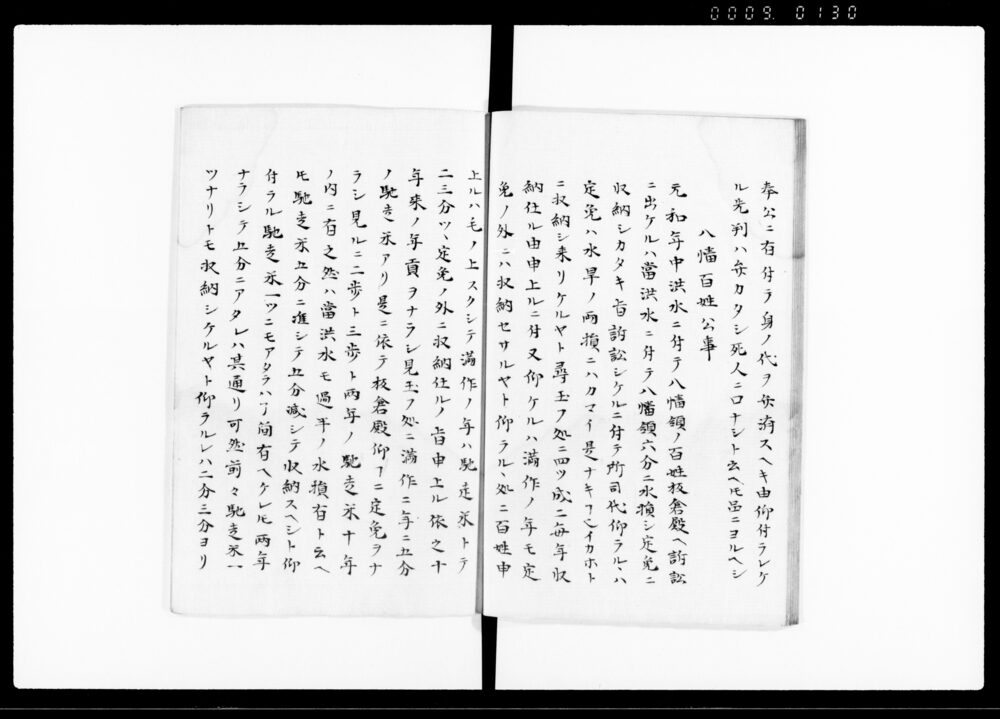 0009. 0130
奉公ニ有付ラ身ノ代ヲ弁済スヘキ由仰付ラレケ
ル先判ハ弁カタシ死人ニロナシト云ヘ𪜈品ニヨルヘシ
八幡百姓公事
元和年中洪水ニ付テ八幡領ノ百姓板倉殿ヘ訴訟
ニ出ケルハ當洪水ニ付テハ八幡領六分ニ水損シ定免ニ
収納シカタキ旨訴訟シケルニ付テ所司代仰ラルヽハ
定免ハ水旱ノ両損ニハカマイ是ナキヿ也イカホト
ニ収納シ来リケルヤト尋玉フ処ニ四ツ成ニ毎年収
納仕ル由申上ルニ付又仰ケルハ満作ノ年モ定
免ノ外ニハ収納セサルヤト仰ラル処ニ百姓申
上ルハ毛ノ上スクシテ満作ノ年ハ馳走米トテ
二三分ツヽ定免ノ外ニ収納仕ルノ旨申上ル依之十
年来ノ年貢ヲナラシ見玉フ処ニ満作ニ年ニ五分
ノ馳走米アリ是ニ依テ板倉殿仰ヿニ定免ヲナ
ラシ見ルニ二歩ト三歩ト両年ノ馳走米十年
ノ内ニ有之然ハ當洪水モ過半ノ水損有ト云ヘ
𪜈馳走米五分ニ准シテ五分減シテ収納スヘシト仰
付ラル馳走米一ツニモアタラハ了簡有ヘケレ𪜈両年
ナラシテ五分ニアタレハ其通リ可然前々馳走米一
ツナリトモ収納シケルヤト仰ラルレハ二分三分ヨリ